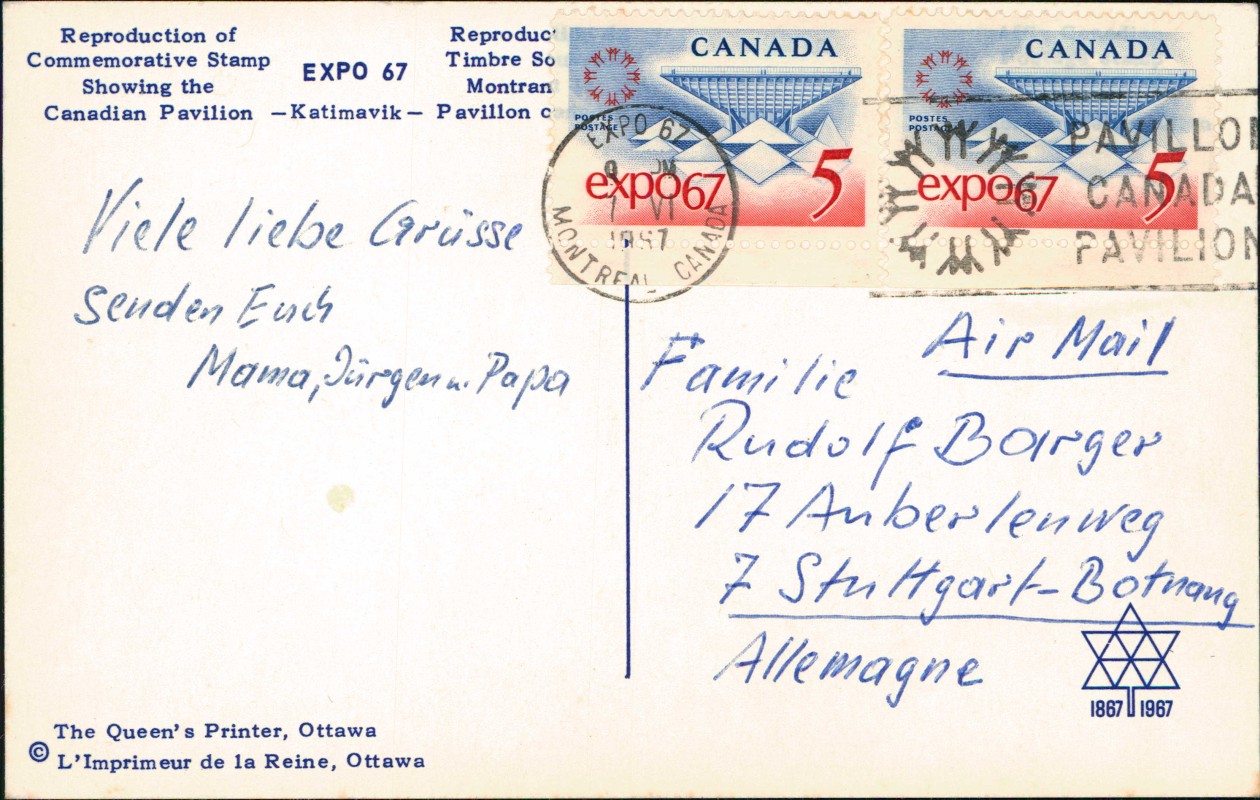 Reproduction of
Commemorative Stamp
Showing the
Canadian Pavilion
EXPO 67
—Katimavik—
Reproduc
Timbre So
Montran
Pavillon c
CANADA
POSTES
POSTAGE
expo67
5
CANADA
POSTES
POSTAGE
expo67
5
EXPO 67
PM
7 VI
1967
MONTREAL CANADA
PAVILLO
CANADA
PAVILION
Viele liebe Grüsse
senden Euch
Mama, Jürgen u. Papa
Air Mail
Familie
Rudolf Barger
17 Auberlenweg
7 Stuttgart-Botnang
Allemagne
1867 1967
The Queen's Printer, Ottawa
© L'Imprimeur de la Reine, Ottawa